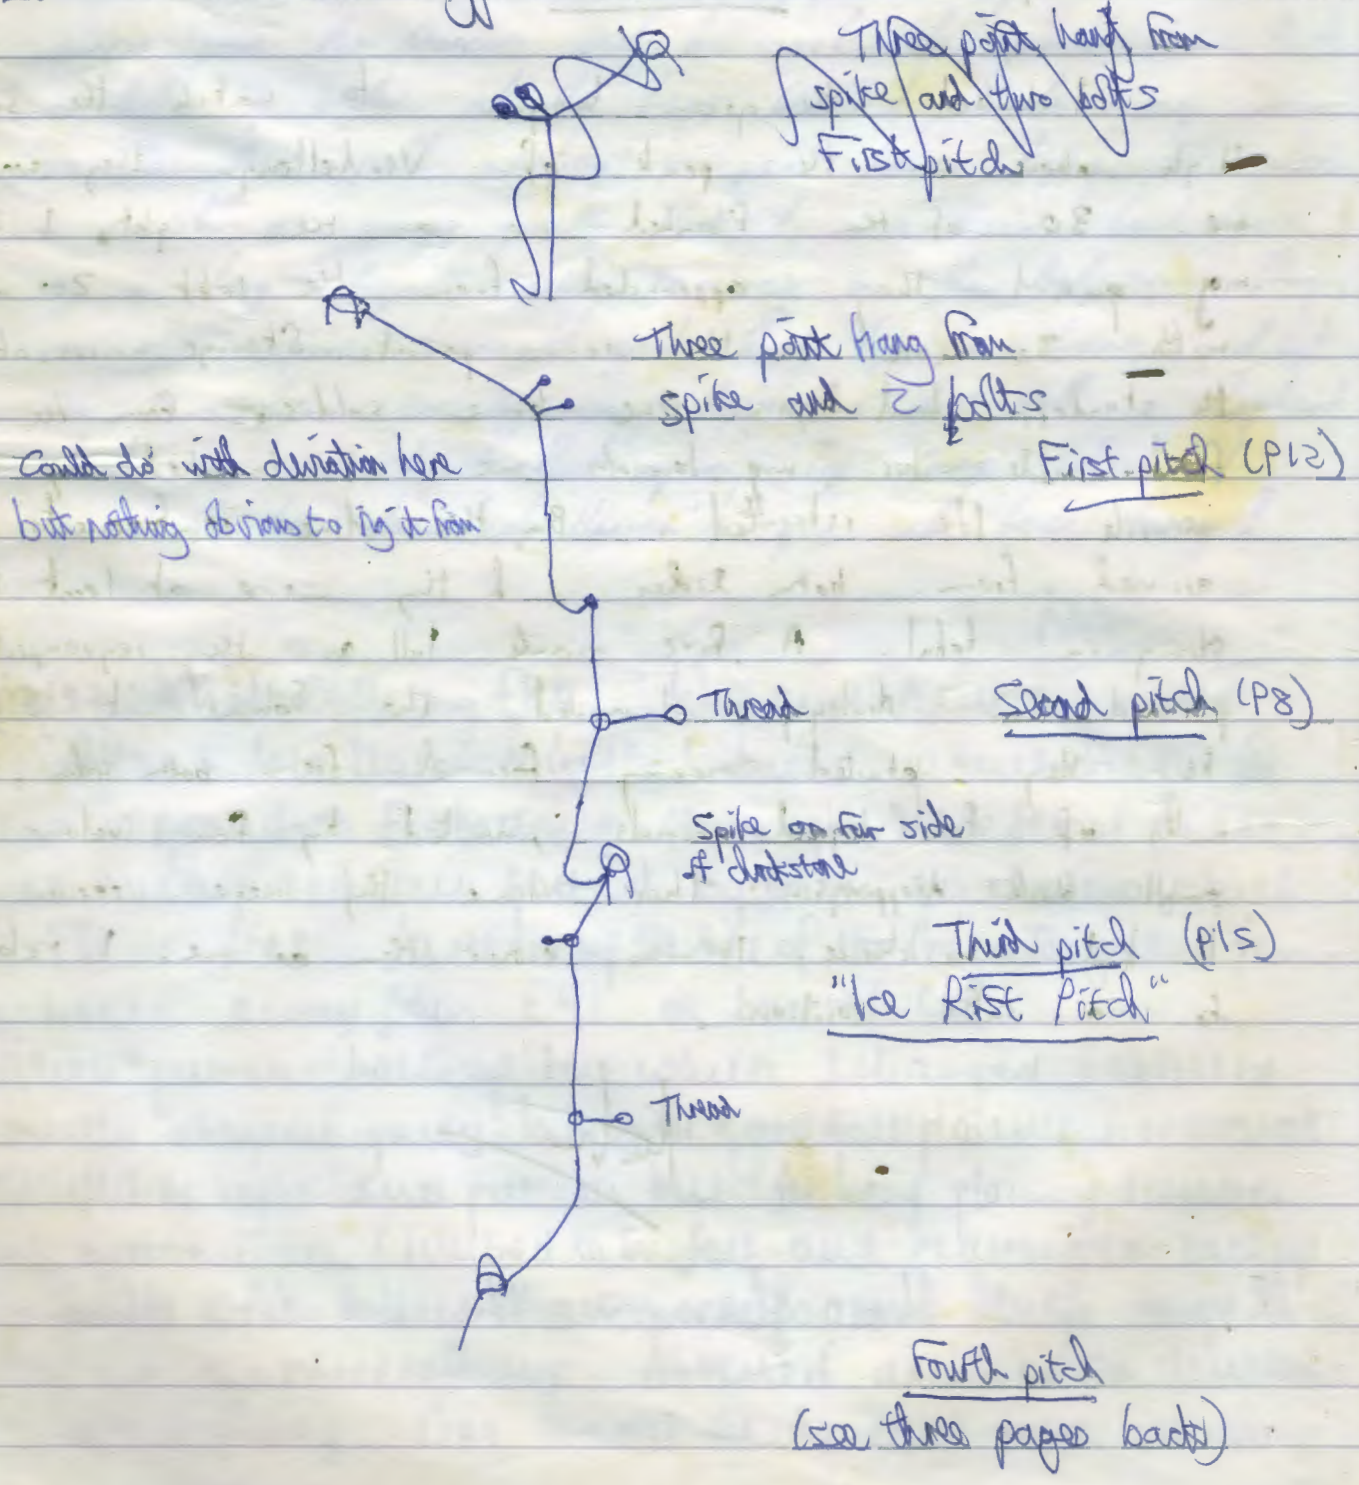 Three point hang from
spike and two bolts
First pitch
Three point hang from
spike and 2 bolts
First pitch (P12)
Could do with deviation here
but nothing obvious to rig it from
Thread
Second pitch (P8)
Spike on far side
of chokstone
Third pitch (P15)
"Ice Rift Pitch"
Thread
Fourth pitch
(see three pages back)